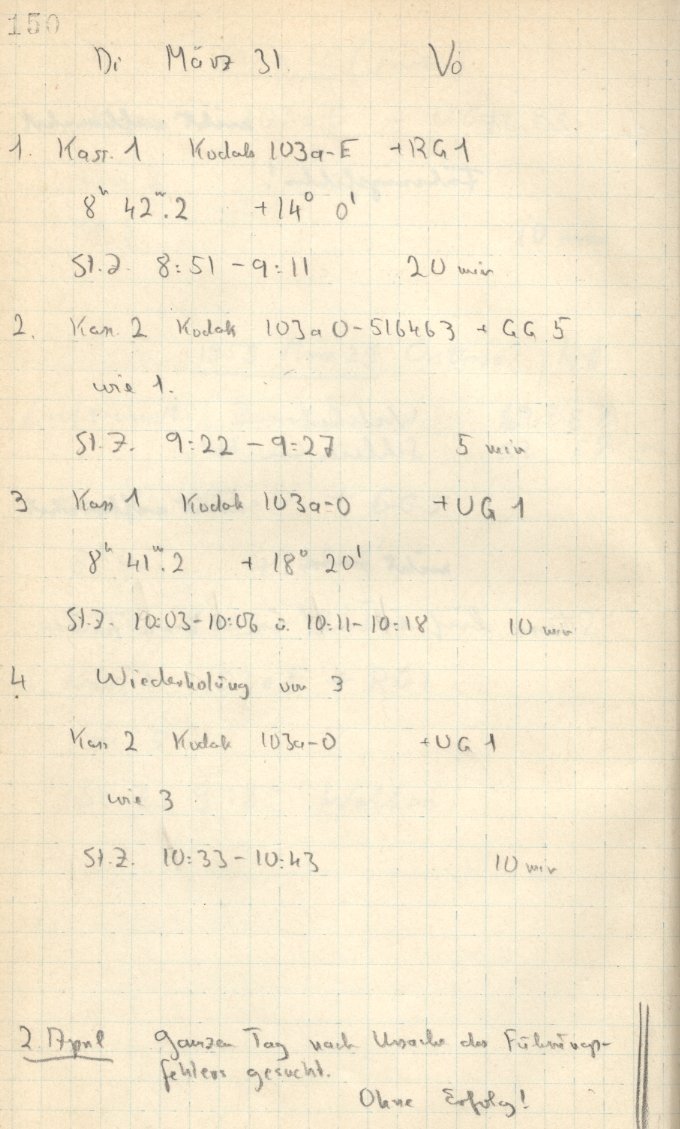 150
Di März 31. Vö
1. Kass. 1 Kodak 103a-E +RG1
8ʰ 42ᵐ.2 +14° 0'
St.Z. 8:51 - 9:11 20 min
2. Kass. 2 Kodak 103a0-516463 + GG 5
wie 1.
St.Z. 9:22 - 9:27 5 min
3 Kass 1 Kodak 103a-0 +UG 1
8ʰ 41ᵐ.2 + 18° 20'
St.Z. 10:03-10:06 u. 10:11-10:18 10 min
4. Wiederholung von 3
Kass 2 Kodak 103a-0 +UG 1
wie 3
St.Z. 10:33-10:43 10 min
2. April ganzen Tag nach Ursache des Führungs-
fehlers gesucht.
Ohne Erfolg!